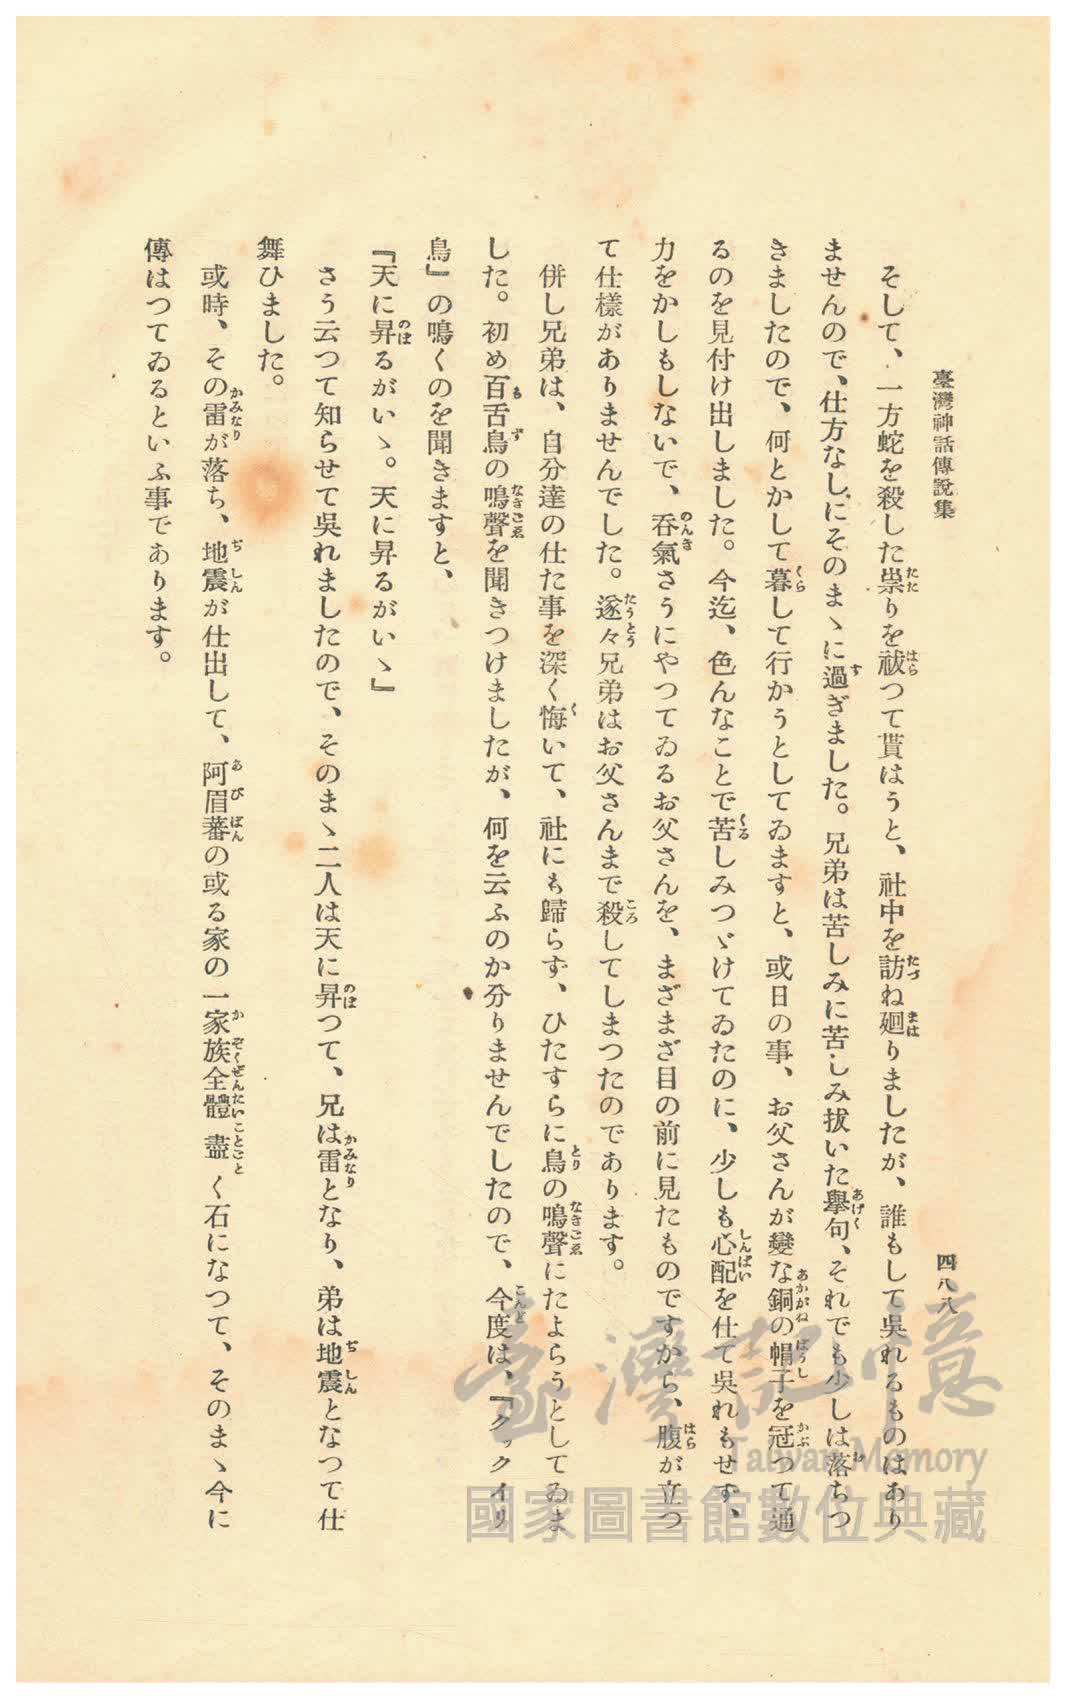 臺灣神話傳說集
四八八
そして、一方蛇を殺した祟りを祓つて貰はうと、社中を訪ね廻りましたが、誰もして吳れるものはあり
ませんので、仕方なしにそのまゝに過ぎました。兄弟は苦しみに苦しみ拔いた擧句、それでも少しは落ちつ
きましたので、何とかして暮して行かうとしてゐますと、或日の事、お父さんが變な銅の帽子を冠つて通
るのを見付け出しました。今迄、色んなことで苦しみつゞけてゐたのに、少しも心配を仕て吳れもせず、
力をかしもしないで、呑氣さうにやつてゐるお父さんを、まざまざ目の前に見たものですから、腹が立つ
て仕樣がありませんでした。遂々兄弟はお父さんまで殺してしまつたのであります。
併し兄弟は、自分達の仕た事を深く悔いて、社にも歸らず、ひたすらに鳥の鳴聲にたよらうとしてゐま
した。初め百舌鳥の鳴聲を聞きつけましたが、何を云ふのか分りませんでしたので、今度は、『クックイリ
鳥』の鳴くのを聞きますと、
『天に昇るがいゝ。天に昇るがいゝ』
さう云つて知らせて吳れましたので、そのまゝ二人は天に昇つて、兄は雷となり、弟は地震となつて仕
舞ひました。
或時、その雷が落ち、地震が仕出して、阿眉蕃の或る家の一家族全體盡く石になつて、そのまゝ今に
傳はつてゐるといふ事であります。
臺灣記憶
Taiwan Memory
國家圖書館數位典藏